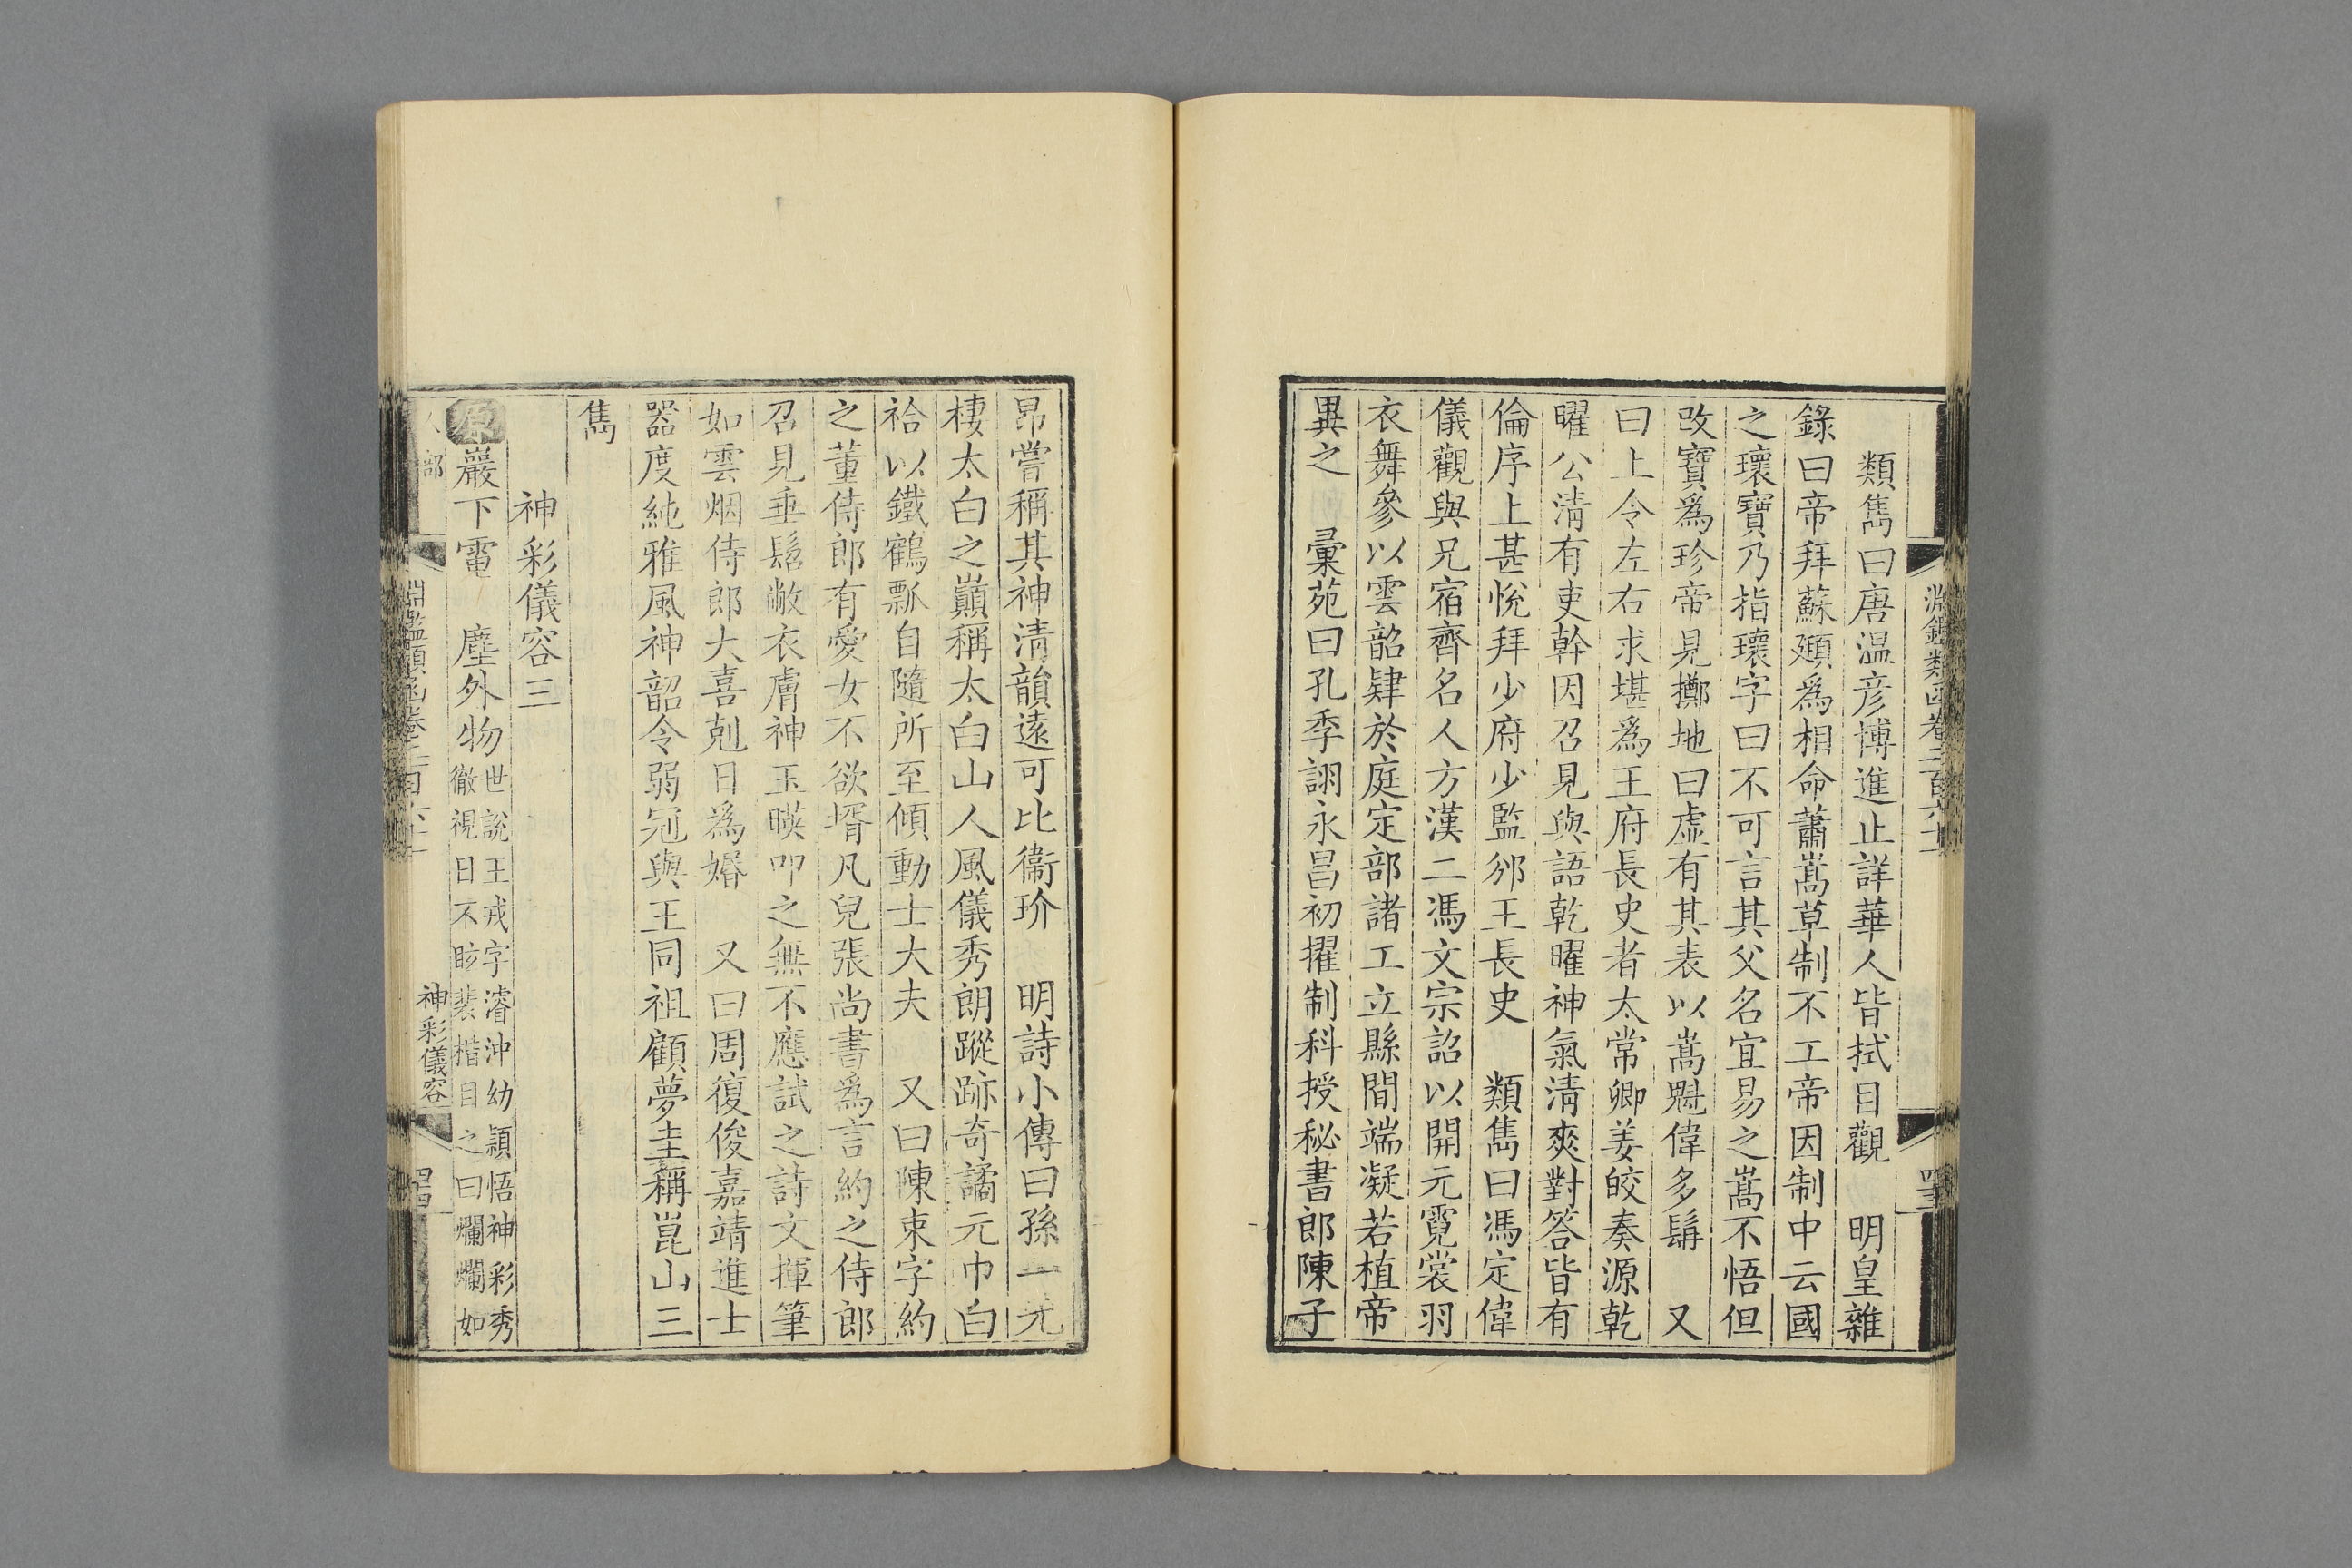 類雋曰唐温彦博進止詳華人皆拭目觀　明皇雜
錄曰帝拜蘇頲爲相命蕭嵩草制不工帝因制中云國
之瓌寶乃指瓌字曰不可言其父名宜易之嵩不悟但
改寶爲珍帝見擲地曰虛有其表以嵩魁偉多髯　又
曰上令左右求堪爲王府長史者太常卿姜皎奏源乾
曜公清有吏幹因召見與語乾曜神氣清爽對答皆有
倫序上甚悅拜少府少監邠王長史　類雋曰馮定偉
儀觀與兄宿齊名人方漢二馮文宗詔以開元霓裳羽
衣舞參以雲韶肄於庭定部諸工立縣間端凝若植帝
異之　彙苑曰孔季詡永昌初擢制科授秘書郎陳子
昂嘗稱其神清韻遠可比衞玠　明詩小傳曰孫一元
棲太白之巔稱太白山人風儀秀朗蹤跡奇譎元巾白
袷以鐵鶴瓢自隨所至傾動士大夫　又曰陳束字約
之董侍郎有愛女不欲壻凡兒張尚書爲言約之侍郎
召見垂髫敝衣膚神玉暎叩之無不應試之詩文揮筆
如雲烟侍郎大喜剋日爲婚　又曰周復俊嘉靖進士
器度純雅風神韶令弱冠與王同祖顧夢圭稱崑山三
雋
神彩儀容三
原巖下電　塵外物世說王戎字濬沖幼穎悟神彩秀
徹視日不眩裴楷目之曰爛爛如
淵鑑類函卷二百六十
人部
淵鑑類函卷二百六十
神彩儀容